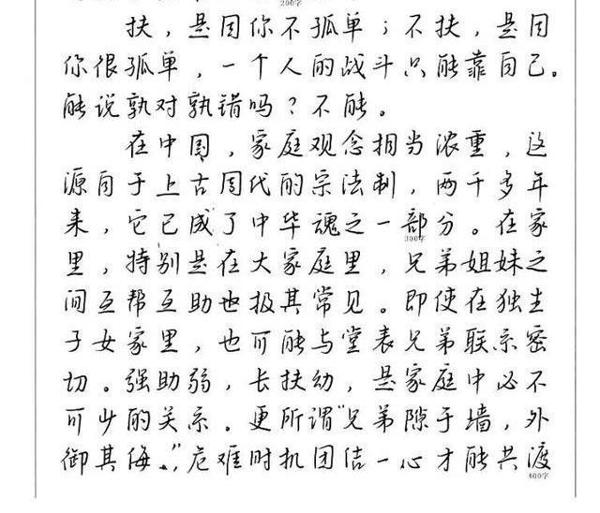 200字
扶，是因你不孤单；不扶，是因
你很孤单，一个人的战斗只能靠自己。
能说孰对孰错吗？不能。
在中国，家庭观念相当浓重，这
源自于上古周代的宗法制，两千多年
来，它已成了中华魂之一部分。在家
300字
里，特别是在大家庭里，兄弟姐妹之
间互帮互助也极其常见。即使在独生
子女家里，也可能与堂表兄弟联系密
切。强助弱，长扶幼，是家庭中必不
可少的关系。更所谓“兄弟隙于墙，外
御其侮。”危难时机团结一心才能共渡
400字